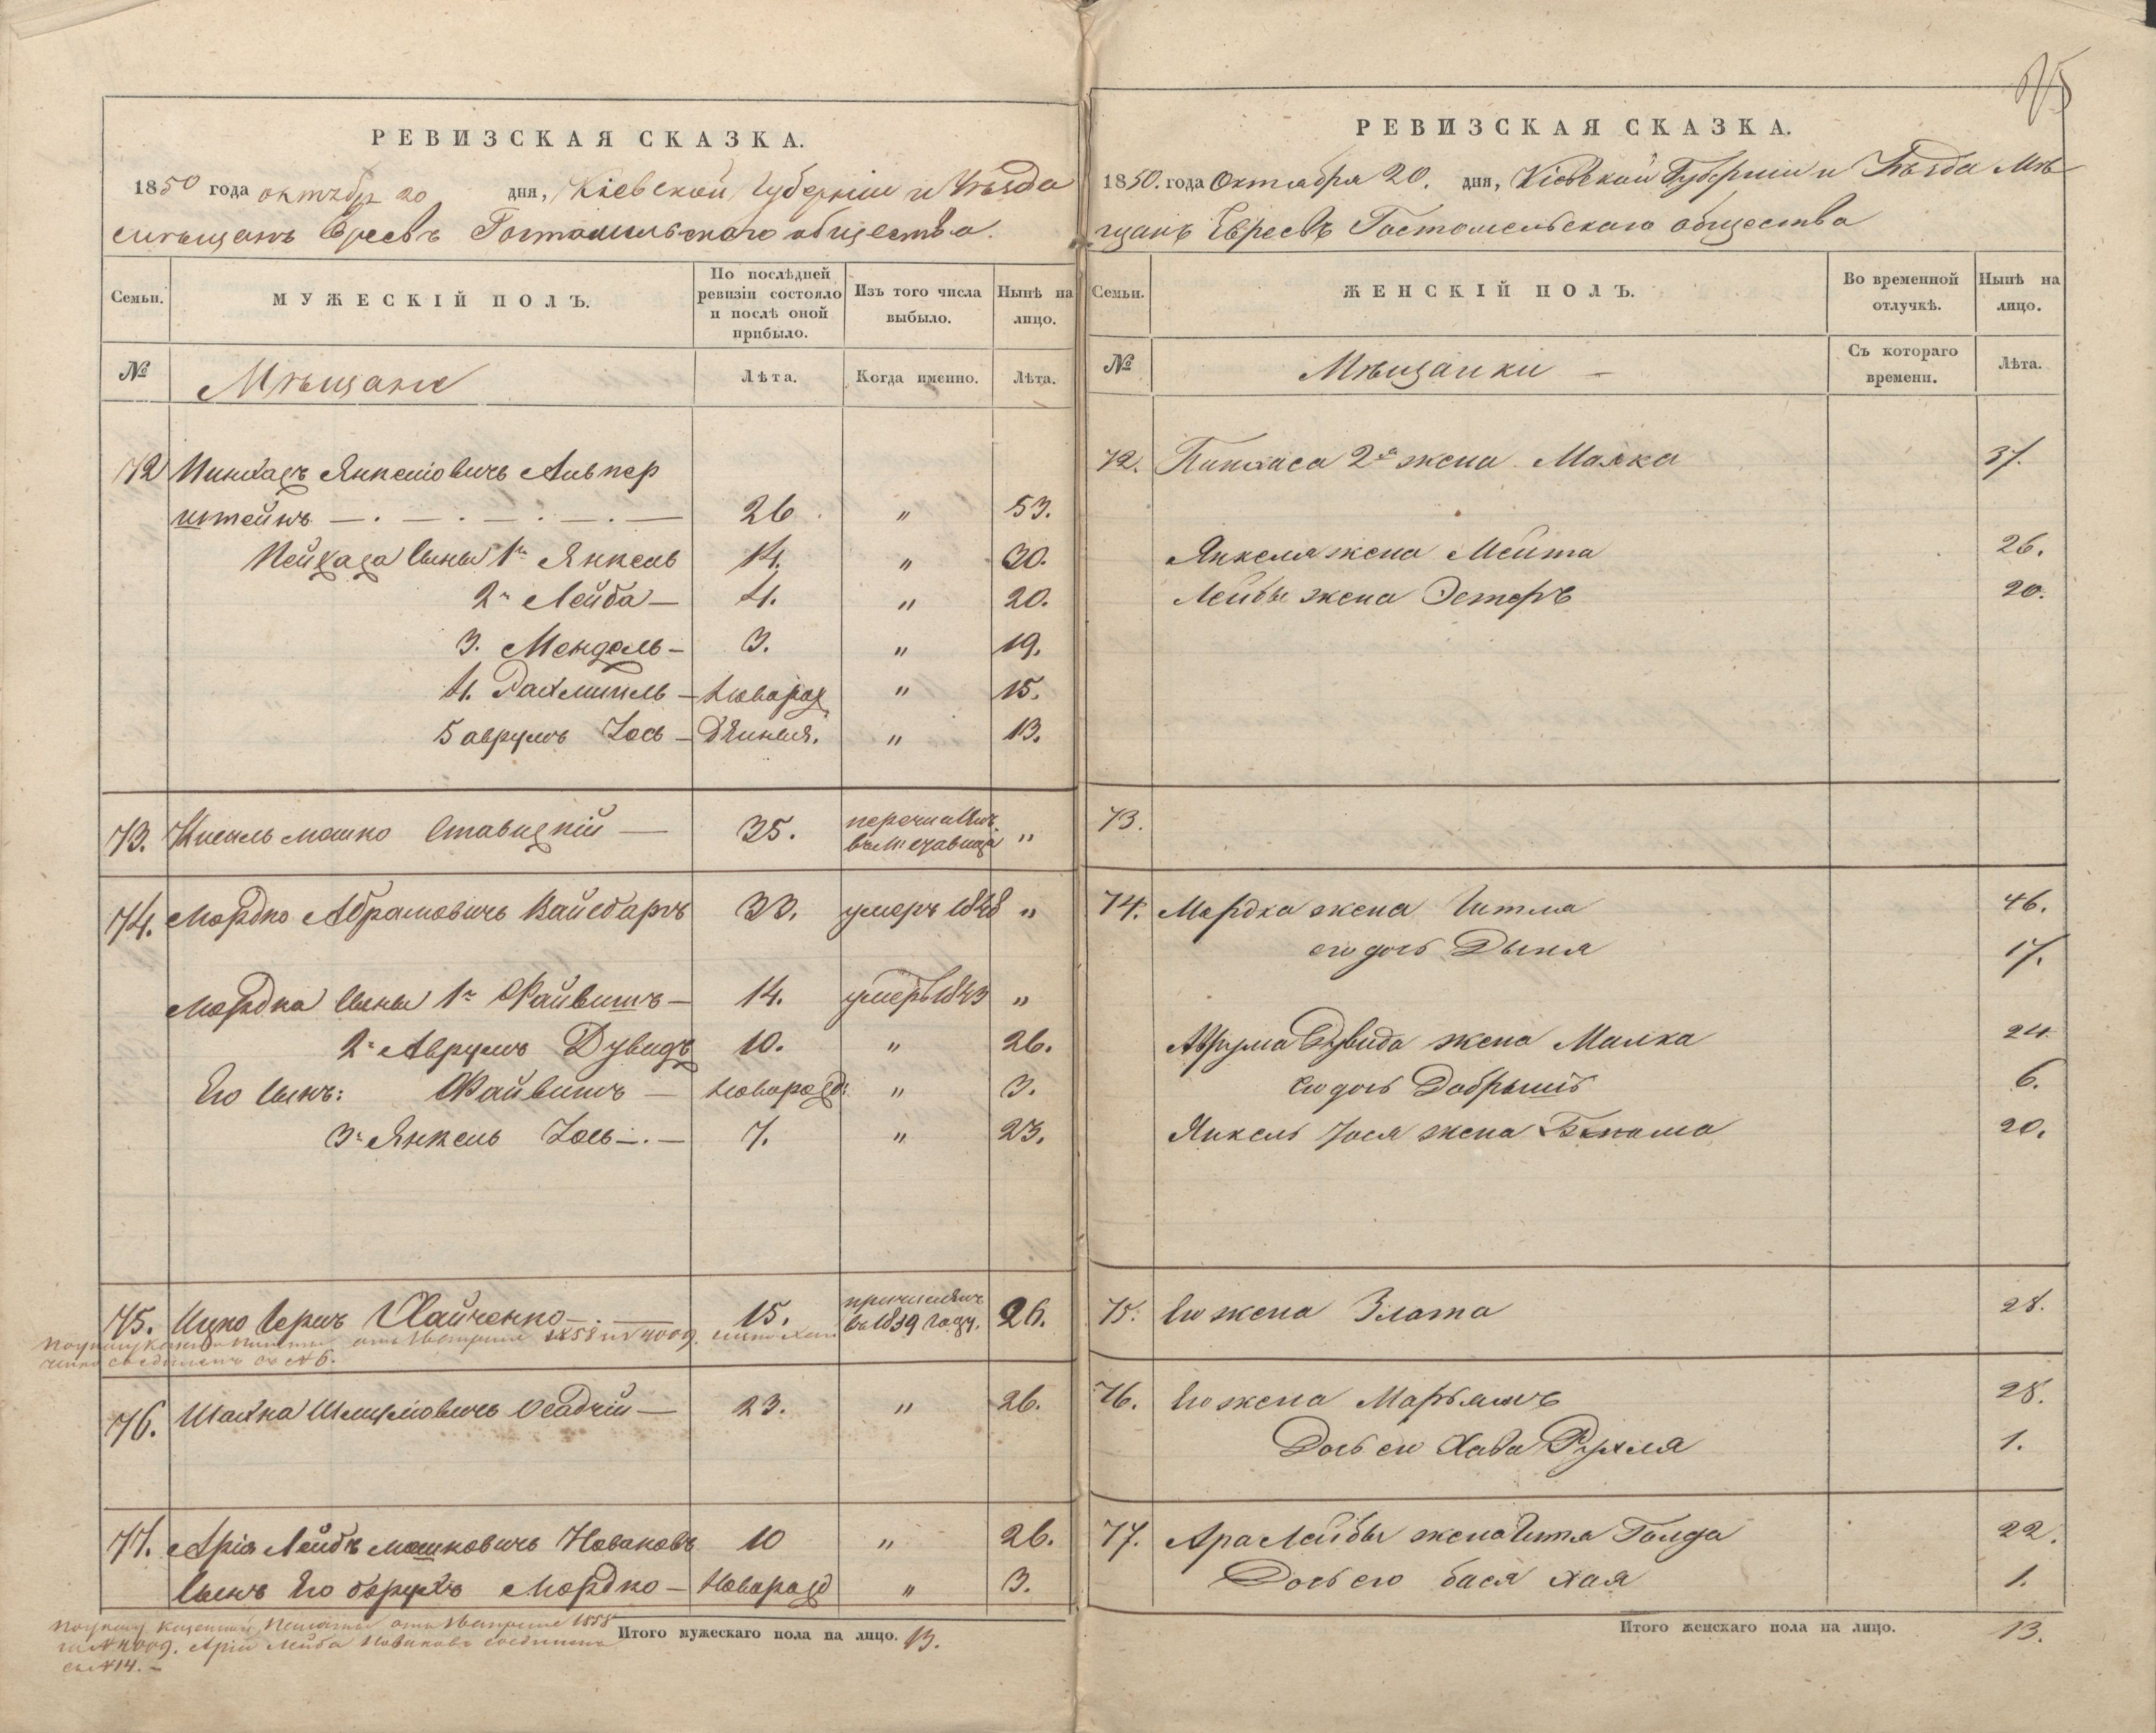 РЕВИЗСКАЯ СКАЗКА.
1850 года октября 20 дня, Кіевской Губерніи и Уѣзда
мѣщанъ Евреевъ Гостомельскаго общества.
Семьи.
МУЖЕСКІЙ ПОЛЪ.
По послѣдней ревизіи состояло и послѣ оной прибыло.
Изъ того числа выбыло.
Нынѣ на лицо.
№
Мѣщане
Лѣта.
Когда именно.
Лѣта.
72 Пинхасъ Янкелiовичъ Альпер
штейнъ 26 " 53.
Пейхаса сыны 1й Янкель 14. " 30.
2й Лейба 4. " 20.
3. Мендель 3. " 19.
4. Рахмиель новорож " 15.
5 аврумъ Іось " 13.
73. Кисель мошко Ставицкій 35. "
74. Мордко Абрамовичъ Вайсбаръ 33. умеръ 1848 "
Мордка сыны 1й Файвишъ 14. умеръ 1843 "
2й Аврумъ Дувидъ 10. " 26.
Его сынъ: Файвишъ новорожд: " 3.
3й Янкель Іось 7. " 23.
75. Ицко Берит Хайченко 15. причисленъ
въ 1839 году. 26.
76. Шахна Шмулiовичъ Осадчій 23. " 26.
77. Арія Лейбъ мошковичъ Новаковъ 10 " 26.
сынъ Его борухъ Мордко Новорожд " 3.
Итого мужескаго пола на лицо. 13.
№ 4009. Арій Лейба Новаковъ соединенъ
съ №14.
РЕВИЗСКАЯ СКАЗКА.
1850. года Октября 20. дня, Кіевской Губерніи и Уѣзда Мѣ
щанъ Евреевъ Гостомельскаго общества
Семьи.
ЖЕНСКІЙ ПОЛЪ.
Во временной отлучкѣ.
Нынѣ на лицо.
№
Мѣщанки
Съ котораго времени.
Лѣта.
72. Пинхаса 2я жена Малка 37.
Янкеля жена Мейта 26.
Лейбы жена Эстеръ 20.
73.
74. Мордка жена Итта 46.
его дочь Дыня 17.
Аврума Дувида жена Малка 24
Его дочь Добрышъ 6.
Янкель Іося жена 20.
75. Его жена Злата 28.
76. Его жена Марьямъ 28.
Дочь его Хава Рухля 1.
77. Ара Лейбы жена Итта Голда 22.
Дочь его бася хая 1.
Итого женскаго пола на лицо. 13.